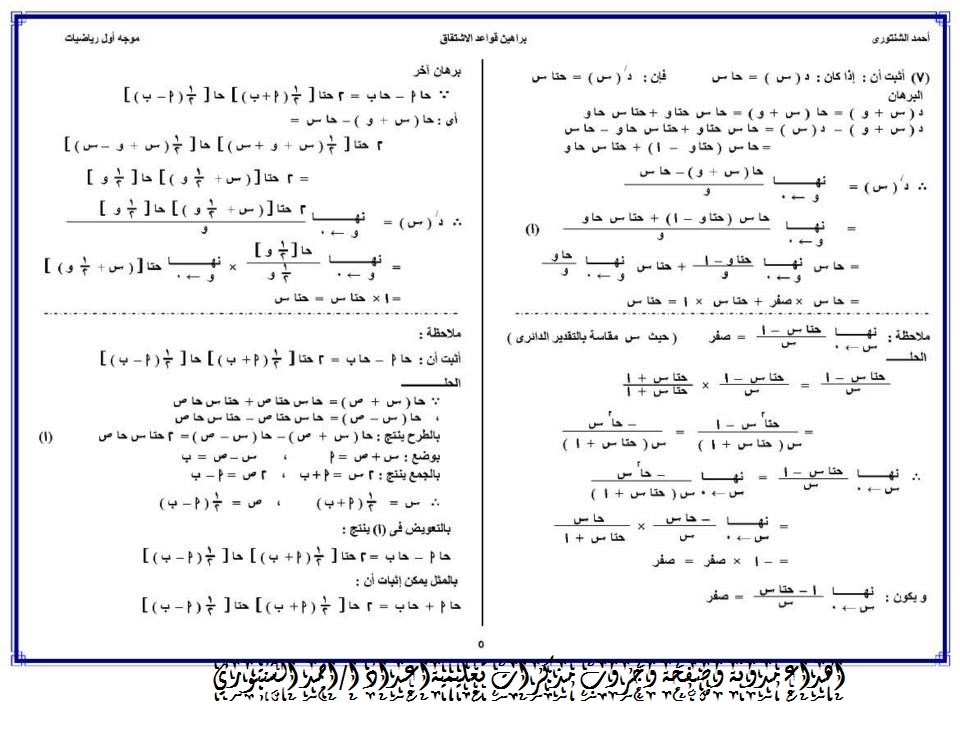 أحمد الشنتورى
براهين قواعد الاشتقاق
موجه أول رياضيات
(٧) أثبت أن : إذا كان : د ( س ) = حا س فإن : د/ ( س ) = حتا س
البرهان
د ( س + و ) = حا ( س + و ) = حا س حتا و + حتا س حا و
د ( س + و ) – د ( س ) = حا س حتا و + حتا س حا و – حا س
= حا س ( حتا و – ١ ) + حتا س حا و
∴ د/ ( س ) = نهـــا و ← ٠ (حا ( س + و ) – حا س) / و
= نهـــا و ← ٠ (حا س ( حتا و – ١ ) + حتا س حا و) / و (١)
= حا س نهـــا و ← ٠ (حتا و – ١) / و + حتا س نهـــا و ← ٠ حا و / و
= حا س × صفر + حتا س × ١ = حتا س
ملاحظة : نهـــا س ← ٠ (حتا س – ١) / س = صفر ( حيث س مقاسة بالتقدير الدائرى )
الحلـــــ
(حتا س – ١) / س = (حتا س – ١) / س × (حتا س + ١) / (حتا س + ١)
= (حتا٢ س – ١) / س ( حتا س + ١ ) = – حا٢ س / س ( حتا س + ١ )
∴ نهـــا س ← ٠ (حتا س – ١) / س = نهـــا س ← ٠ – حا٢ س / س ( حتا س + ١ )
= نهـــا س ← ٠ – حا س / س × حا س / (حتا س + ١)
= – ١ × صفر = صفر
و يكون : نهـــا س ← ٠ (١ – حتا س) / س = صفر
برهان آخر
∵ حا ﺃ – حا ب = ٢ حتا [ ١/٢ ( ﺃ + ب ) ] حا [ ١/٢ ( ﺃ – ب ) ]
أى : حا ( س + و ) – حا س =
٢ حتا [ ١/٢ ( س + و + س ) ] حا [ ١/٢ ( س + و – س ) ]
= ٢ حتا [ ( س + ١/٢ و ) ] حا [ ١/٢ و ]
∴ د/ ( س ) = نهـــا و ← ٠ ٢ حتا [ ( س + ١/٢ و ) ] حا [ ١/٢ و ] / و
= نهـــا و ← ٠ حا [ ١/٢ و ] / ١/٢ و × نهـــا و ← ٠ حتا [ ( س + ١/٢ و ) ]
= ١ × حتا س = حتا س
ملاحظة :
أثبت أن : حا ﺃ – حا ب = ٢ حتا [ ١/٢ ( ﺃ + ب ) ] حا [ ١/٢ ( ﺃ – ب ) ]
الحلـــــ
∵ حا ( س + ص ) = حا س حتا ص + حتا س حا ص
، حا ( س – ص ) = حا س حتا ص – حتا س حا ص
بالطرح ينتج : حا ( س + ص ) – حا ( س – ص ) = ٢ حتا س حا ص (١)
بوضع : س + ص = ﺃ ، س – ص = ب
بالجمع ينتج : ٢ س = ﺃ + ب ، ٢ ص = ﺃ – ب
∴ س = ١/٢ ( ﺃ + ب ) ، ص = ١/٢ ( ﺃ – ب )
بالتعويض فى (١) ينتج :
حا ﺃ – حا ب = ٢ حتا [ ١/٢ ( ﺃ + ب ) ] حا [ ١/٢ ( ﺃ – ب ) ]
بالمثل يمكن إثبات أن :
حا ﺃ + حا ب = ٢ حا [ ١/٢ ( ﺃ + ب ) ] حتا [ ١/٢ ( ﺃ – ب ) ]
٥
اهداء مدونة وصفحة وجروب مذكرات تعليمية اعداد ا/احمد الشنتوري